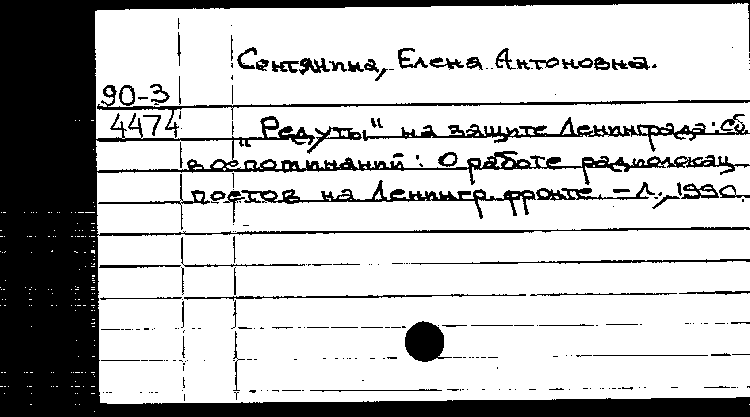 Сентянина, Елена Антоновна.
90-3
4474
„Редуты" на защите Ленинграда: Сб.
воспоминаний: О работе радиолокац.
постов на Ленингр. фронте. - Л., 1990.